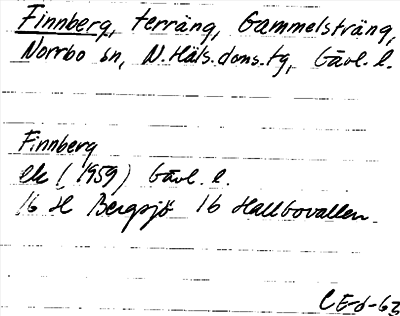 Finnberg, terräng, Gammelsträng,
Norrbo sn, N. Häls. doms. tg, Gävl. l.
Finnberg
ek (1959) Gävl. l.
16 H Bergsjö 16 Hallbovallen
CE-d-63